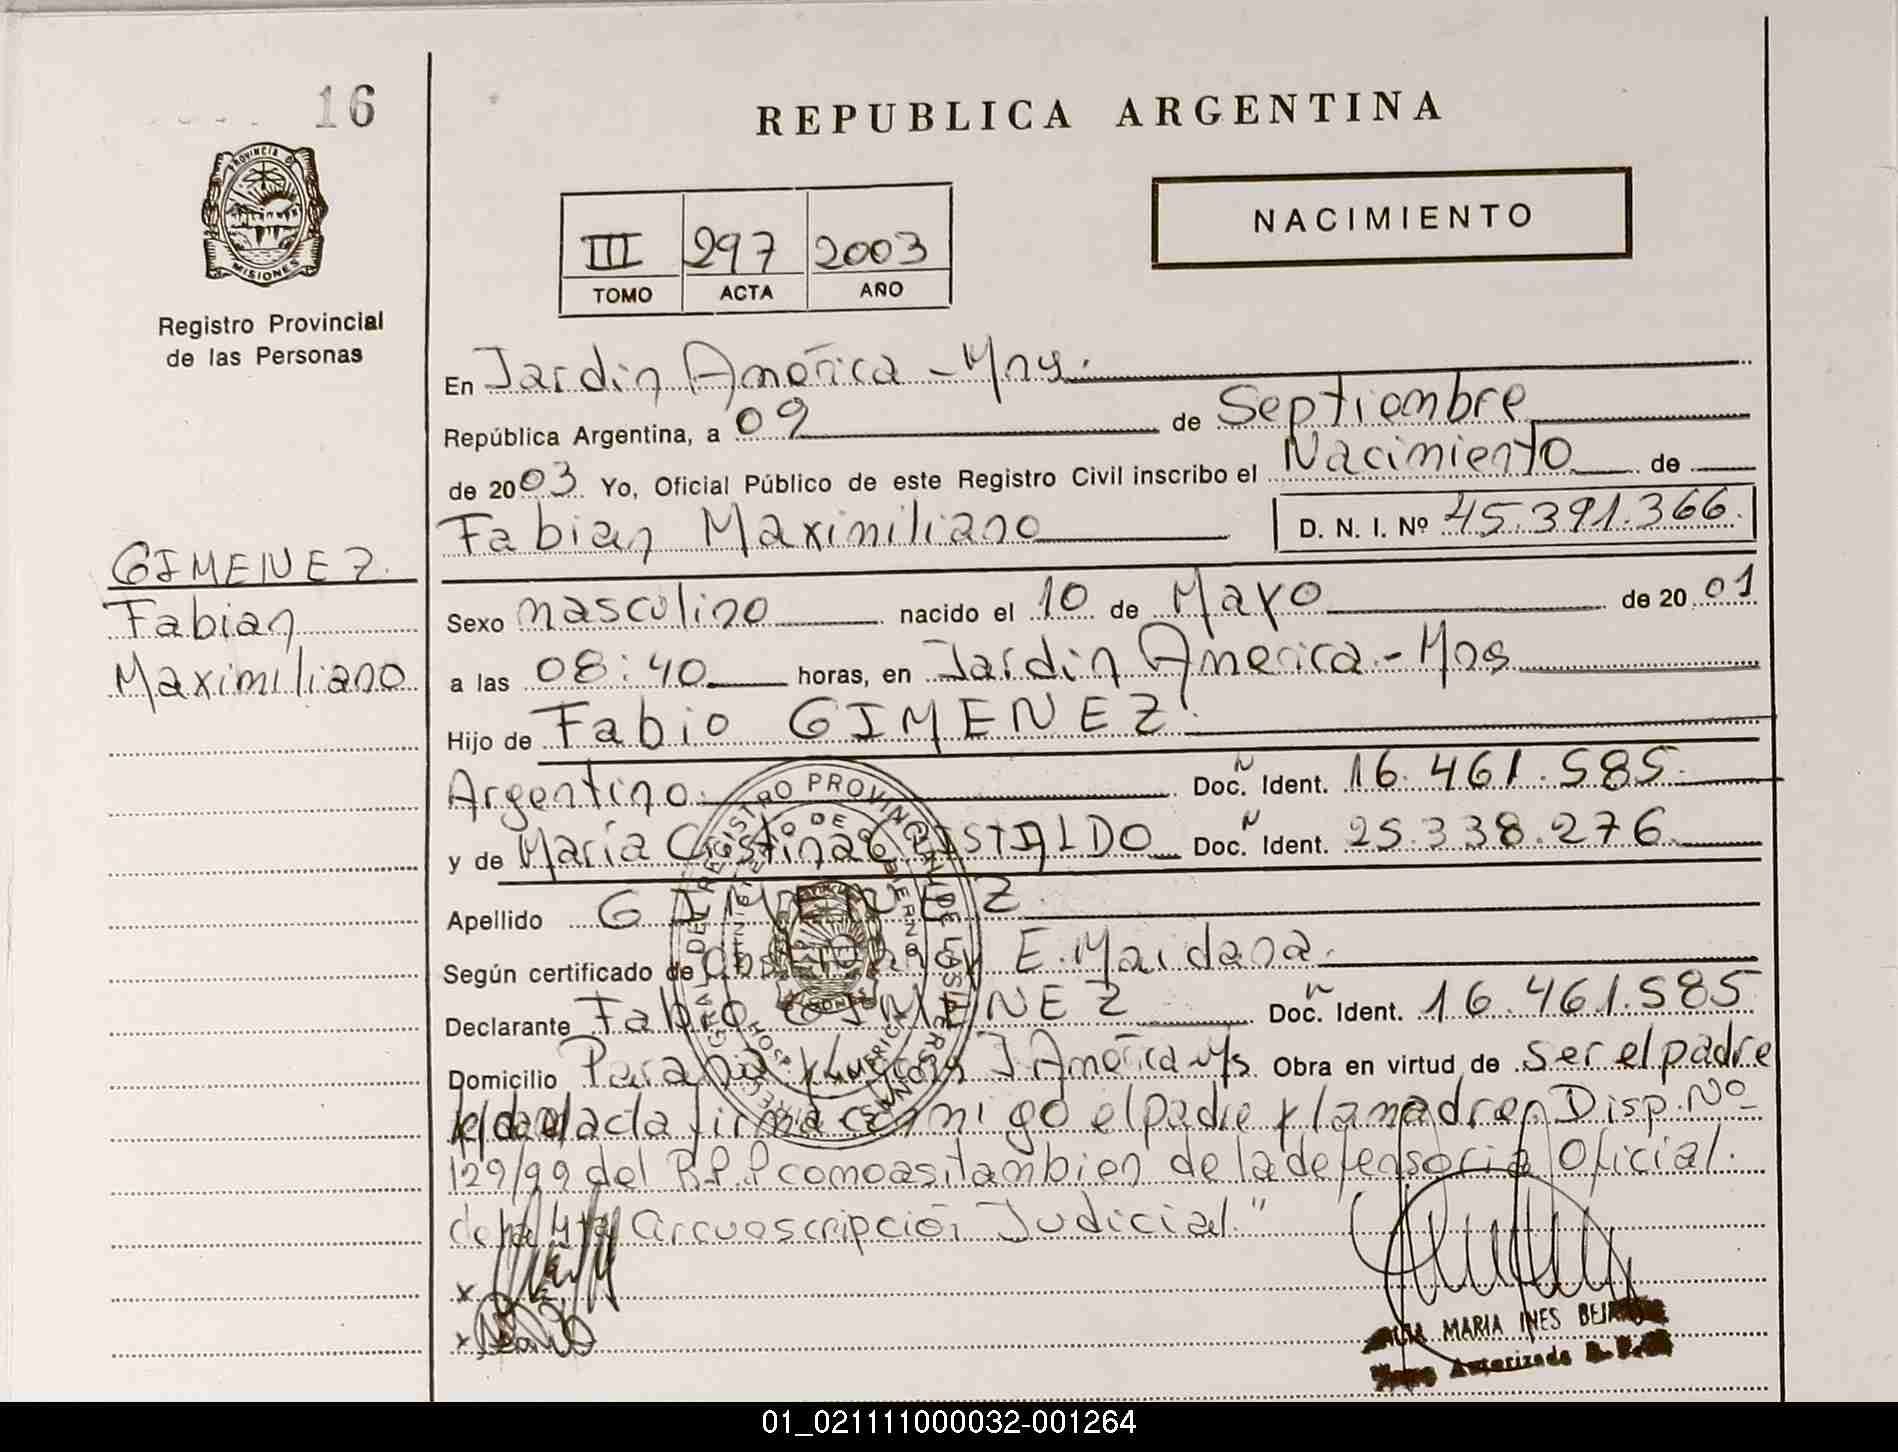 16
PROVINCIA DE
MISIONES
Registro Provincial
de las Personas
GIMENEZ
Fabian
Maximiliano
REPUBLICA ARGENTINA
NACIMIENTO
III 297 2003
TOMO ACTA AÑO
En Jardin América - Mns.
República Argentina, a 09 de Septiembre
de 2003 Yo, Oficial Público de este Registro Civil inscribo el Nacimiento de
Fabian Maximiliano D. N. I. Nº 45.391.366.
Sexo masculino nacido el 10 de Mayo de 2001
a las 08:40 horas, en Jardin America - Mns
Hijo de Fabio GIMENEZ.
Argentino. Doc. Ident. 16.461.585.
y de María Cristina Doc. Ident. 25.338.276.
Apellido GIMENEZ.
Según certificado de E. Maidana.
Declarante Fabio GIMENEZ Doc. Ident. 16.461.585
Domicilio Paraná y J. América Ms Obra en virtud de ser el padre
firma conmigo el padre y la madre Disp. Nº
129/99 del R.P.P como asi tambien de la defensoria Oficial.
de la 4ta Circunscripción Judicial."
x
x
MARIA INES
Autorizada
01_021111000032-001264